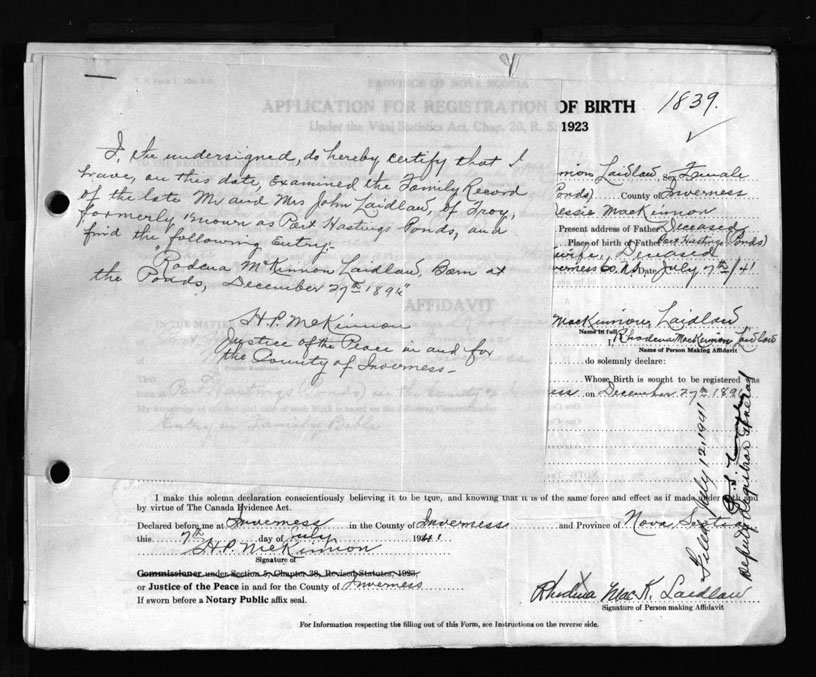 PROVINCE OF NOVA SCOTIA
APPLICATION FOR REGISTRATION OF BIRTH
1839.
Under the Vital Statistics Act, Chap. 20, R. S. 1923
I, the undersigned, do hereby certify that I
have, on this date, examined the Family Record
of the late Mr and Mrs John Laidlaw, of Troy,
formerly known as Port Hastings Ponds, and
find the following Entry:-
"Rodena McKinnon Laidlaw, Born at
the Ponds, December 27th 1896"
H. P. McKinnon
Justice of the Peace in and for
the County of Inverness-
nnon Laidlaw, Sex Female
Ponds) County of Inverness
essie MacKinnon
Present address of Father Deceased
Place of birth of Father Port Hastings (Ponds)
wife, Deceased
verness Co. N.S. Date July 7th/41
AFFIDAVIT
MacKinnon, Laidlaw
Name in full
I, Rhodena MacKinnon Laidlaw
Name of Person Making Affidavit
do solemnly declare:
Whose Birth is sought to be registered was
Port Hastings (Ponds) in the County of
ess on December 27th 1896
Entry in Family Bible
I make this solemn declaration conscientiously believing it to be true, and knowing that it is of the same force and effect as if made under oath and
by virtue of The Canada Evidence Act.
Declared before me at Inverness in the County of Inverness and Province of Nova Scotia
this 7th day of July 1941
H. P. McKinnon
Signature of
Commissioner under Section 5, Chapter 38, Revised Statutes, 1923,
or Justice of the Peace in and for the County of Inverness
If sworn before a Notary Public affix seal.
Rhodena MacK. Laidlaw
Signature of Person making Affidavit
For Information respecting the filling out of this Form, see Instructions on the reverse side.
Filed July 12, 1941
Deputy Registrar General